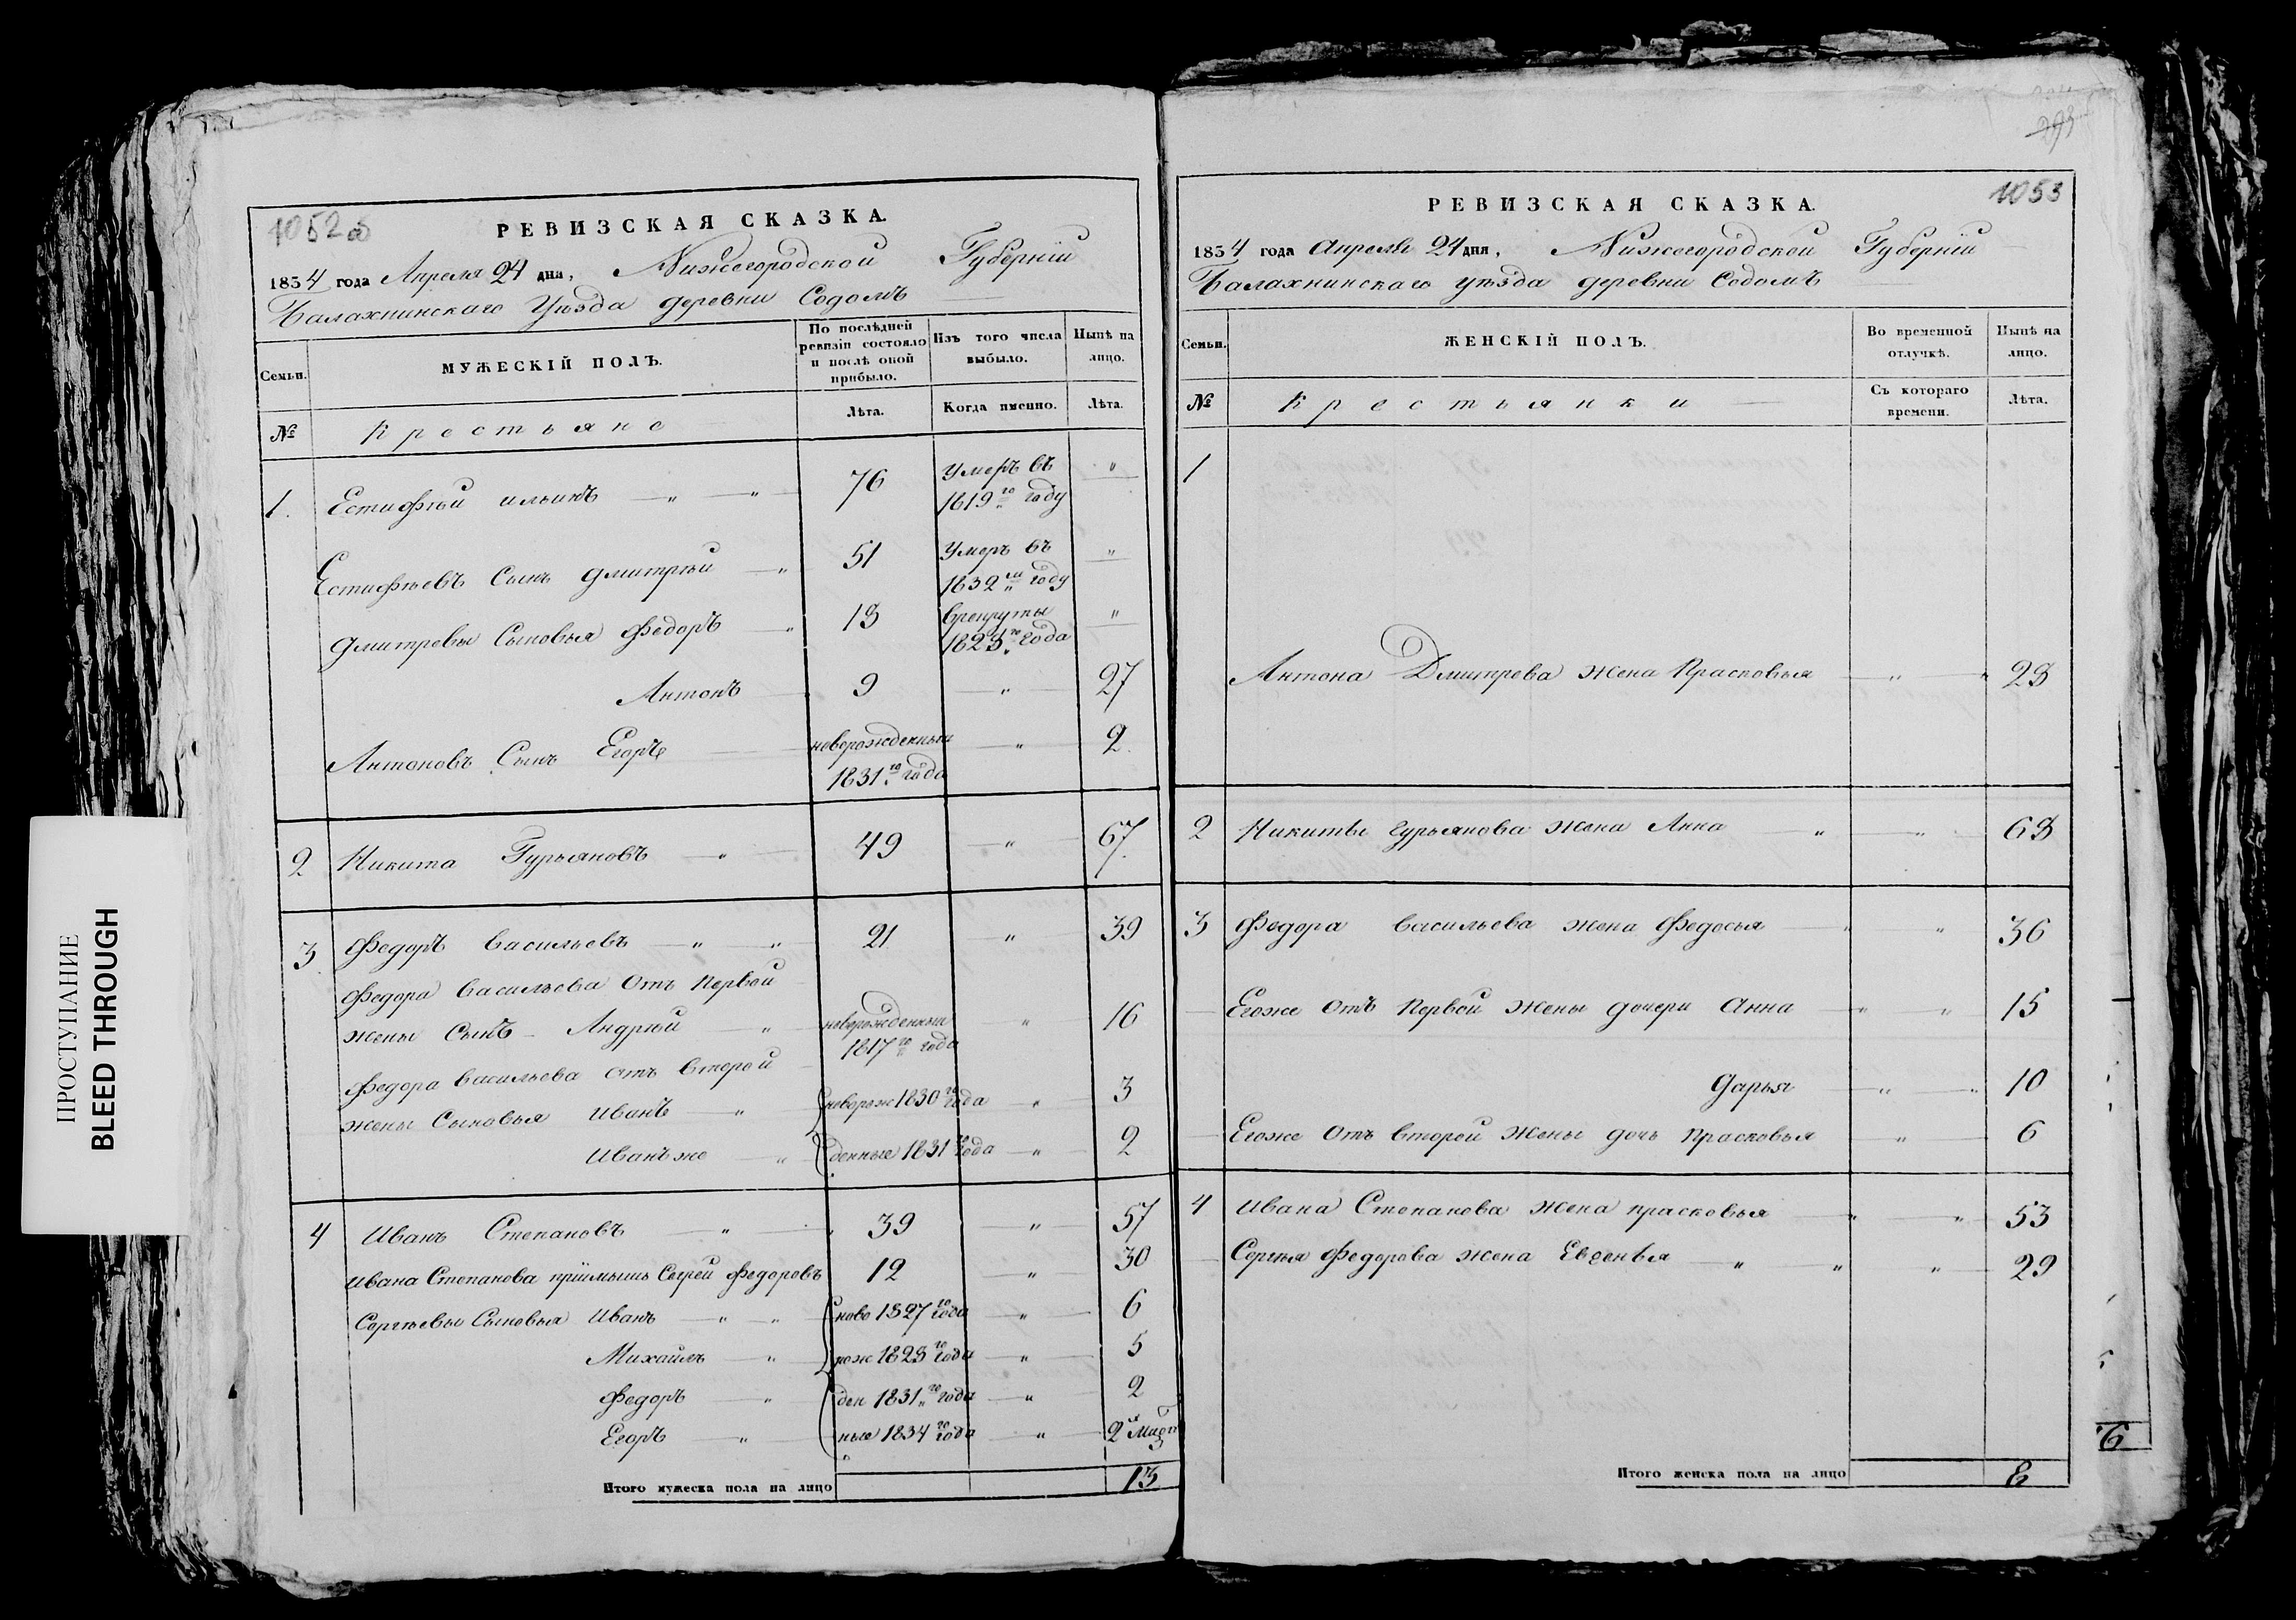 ПРОСТУПАНИЕ
BLEED THROUGH
1052об
РЕВИЗСКАЯ СКАЗКА.
1834 года Апреля 24 дна, Нижегородской Губернiи
Балахнинскаго Уѣзда деревни Содомъ
Семьи.
МУЖЕСКIЙ ПОЛЪ.
По послѣдней ревизiи состояло и послѣ оной прибыло.
Изъ того числа выбыло.
Нынѣ на лицо.
№
Крестьяне
Лѣта.
Когда именно.
Лѣта.
1. Естифѣй ильинъ — " — " 76 Умеръ въ 1819го году "
Естифѣевъ Сынъ Дмитрѣй — " 51 Умеръ въ 1832м году "
Дмитревы Сыновья Федоръ — " 18 врекруты 1823го года "
Антонъ 9 " 27
Антоновъ Сынъ Егоръ новорожденный 1831го года " 2
2 Никита Гурьяновъ — " 49 " 67
3 Федоръ Васильевъ — " — " 21 " 39
Федора Васильева отъ Первой
жены Сынъ — Андрѣй " новорожденный 1817го года " 16
Федора Васильева отъ Второй
жены Сыновья Иванъ — " новорож 1830го года " 3
Иванъ же — " денные 1831го года " 2
4 Иванъ Степановъ " 39 " 57
Ивана Степанова прiимышъ Сергей Федоровъ 12 " 30
Сергѣевы Сыновья Иванъ — " — " ново 1827го года " 6
Михайлъ — " рож 1828го года " 5
Федоръ " ден 1831го года " 2
Егоръ " ные 1834го года "
Итого мужеска пола на лицо 13
1053
РЕВИЗСКАЯ СКАЗКА.
1834 года Апреля 24 дня, Нижегородской Губернiи
Балахнинскаго уѣзда деревни Содомъ
Семьи.
ЖЕНСКIЙ ПОЛЪ.
Во временной отлучкѣ.
Нынѣ на лицо.
№
Крестьянки
Съ котораго времени.
Лѣта.
1
Антона Дмитрева жена Прасковья " " 28
2 Никиты Гурьянова жена Анна " " 68
3 Федора Васильева жена Федосья " " 36
Егоже отъ Первой жены дочери Анна " " 15
Дарья " " 10
Егоже отъ второй жены дочь Прасковья " 6
4 Ивана Степанова жена прасковья " " 53
Сергѣя Федорова жена Евгенья " " " 29
Итого женска пола на лицо 8